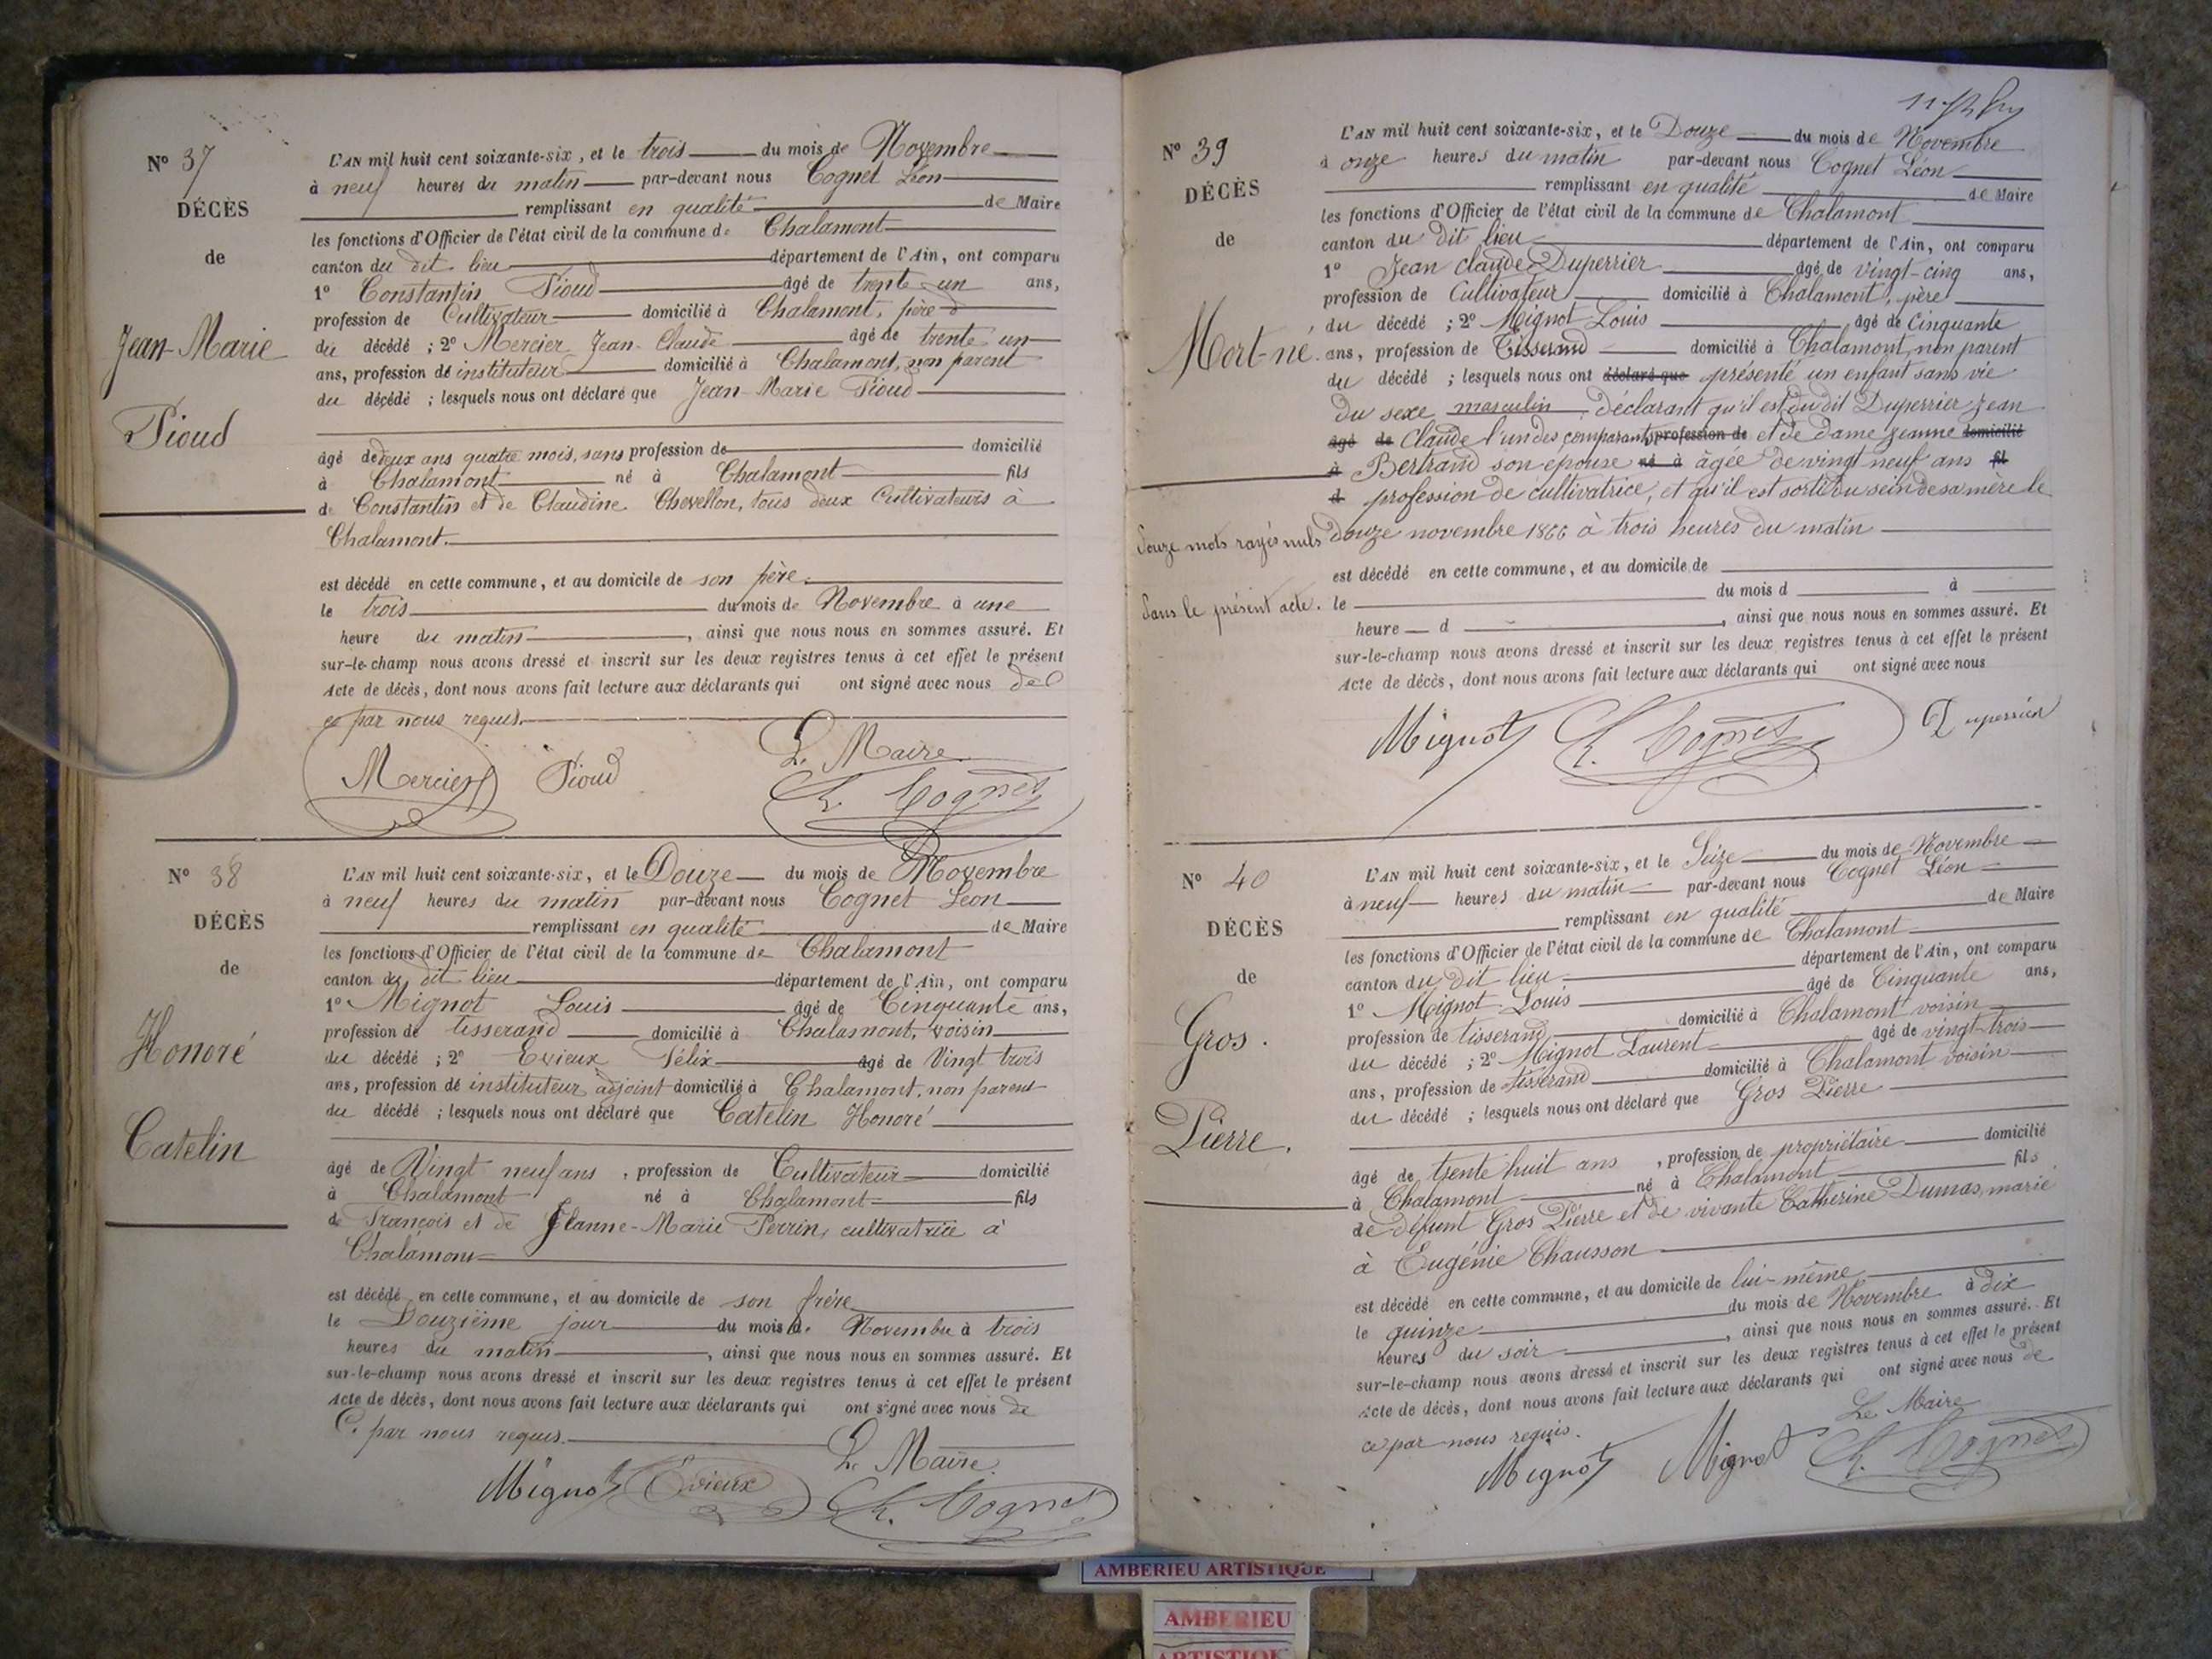 N° 37
DÉCÈS
de
Jean-Marie
Pioud
L'AN mil huit cent soixante-six, et le trois du mois de Novembre
à neuf heures du matin par-devant nous Cognet Léon
remplissant en qualité de Maire
les fonctions d'Officier de l'état civil de la commune de Chalamont
canton du dit lieu département de l'Ain, ont comparu
1° Constantin Pioud âgé de trente-un ans,
profession de Cultivateur domicilié à Chalamont, père d
du décédé ; 2° Mercier Jean-Claude âgé de trente un
ans, profession de instituteur domicilié à Chalamont, non parent
du décédé ; lesquels nous ont déclaré que Jean-Marie Pioud
âgé de deux ans quatre mois, sans profession de domicilié
à Chalamont né à Chalamont fils
de Constantin et de Claudine Chevellon, tous deux Cultivateurs à
Chalamont.
est décédé en cette commune, et au domicile de son père.
le trois du mois de Novembre à une
heure du matin, ainsi que nous nous en sommes assuré. Et
sur-le-champ nous avons dressé et inscrit sur les deux registres tenus à cet effet le présent
Acte de décès, dont nous avons fait lecture aux déclarants qui ont signé avec nous de
ce par nous requis.
Le Maire
Mercier Pioud L. Cognet
N° 38
DÉCÈS
de
Honoré
Catelin
L'AN mil huit cent soixante-six, et le Douze du mois de Novembre
à neuf heures du matin par-devant nous Cognet Léon
remplissant en qualité de Maire
les fonctions d'Officier de l'état civil de la commune de Chalamont
canton du dit lieu département de l'Ain, ont comparu
1° Mignot Louis âgé de Cinquante ans,
profession de tisserand domicilié à Chalamont, voisin
du décédé ; 2° Evieux Félix âgé de Vingt trois
ans, profession de instituteur adjoint domicilié à Chalamont, non parent
du décédé ; lesquels nous ont déclaré que Catelin Honoré
âgé de Vingt neuf ans, profession de Cultivateur domicilié
à Chalamont né à Chalamont fils
de François et de Jeanne-Marie Perrin, cultivatrice à
Chalamont
est décédé en cette commune, et au domicile de son frère
le Douzième jour du mois de Novembre à trois
heures du matin, ainsi que nous nous en sommes assuré. Et
sur-le-champ nous avons dressé et inscrit sur les deux registres tenus à cet effet le présent
Acte de décès, dont nous avons fait lecture aux déclarants qui ont signé avec nous de
Ce par nous requis.
Le Maire
Mignot Evieux L. Cognet
N° 39
DÉCÈS
de
Mort-né.
L'AN mil huit cent soixante-six, et le Douze du mois de Novembre
à onze heures du matin par-devant nous Cognet Léon
remplissant en qualité de Maire
les fonctions d'Officier de l'état civil de la commune de Chalamont
canton du dit lieu département de l'Ain, ont comparu
1° Jean claude Duperrier âgé de vingt-cinq ans,
profession de Cultivateur domicilié à Chalamont, père
du décédé ; 2° Mignot Louis âgé de Cinquante
ans, profession de Tisserand domicilié à Chalamont, non parent
du décédé ; lesquels nous ont déclaré que présenté un enfant sans vie
du sexe masculin déclarant qu'il est du dit Duperrier Jean
âgé de Claude l'un des comparants profession de et de dame Jeanne domicilié
à Bertrand son épouse né à âgée de vingt neuf ans fil
d profession de cultivatrice, et qu'il est sorti du sein de sa mère le
Douze novembre 1866 à trois heures du matin
Douze mots rayés nuls
dans le présent acte.
est décédé en cette commune, et au domicile de
le du mois d à
heure d, ainsi que nous nous en sommes assuré. Et
sur-le-champ nous avons dressé et inscrit sur les deux registres tenus à cet effet le présent
Acte de décès, dont nous avons fait lecture aux déclarants qui ont signé avec nous
Mignot L. Cognet Duperrier
N° 40
DÉCÈS
de
Gros.
Pierre.
L'AN mil huit cent soixante-six, et le Seize du mois de Novembre
à neuf heures du matin par-devant nous Cognet Léon
remplissant en qualité de Maire
les fonctions d'Officier de l'état civil de la commune de Chalamont
canton du dit lieu département de l'Ain, ont comparu
1° Mignot Louis âgé de Cinquante ans,
profession de tisserand domicilié à Chalamont voisin
du décédé ; 2° Mignot Laurent âgé de vingt-trois
ans, profession de tisserand domicilié à Chalamont voisin
du décédé ; lesquels nous ont déclaré que Gros Pierre
âgé de trente huit ans, profession de propriétaire domicilié
à Chalamont né à Chalamont fils
de défunt Gros Pierre et de vivante Catherine Dumas, marié
à Eugénie Chausson
est décédé en cette commune, et au domicile de lui-même
le quinze du mois de Novembre à dix
heures du soir, ainsi que nous nous en sommes assuré. Et
sur-le-champ nous avons dressé et inscrit sur les deux registres tenus à cet effet le présent
Acte de décès, dont nous avons fait lecture aux déclarants qui ont signé avec nous de
ce par nous requis.
Le Maire
Mignot Mignot L. Cognet
AMBERIEU ARTISTIQUE
AMBERIEU
ARTISTIQUE